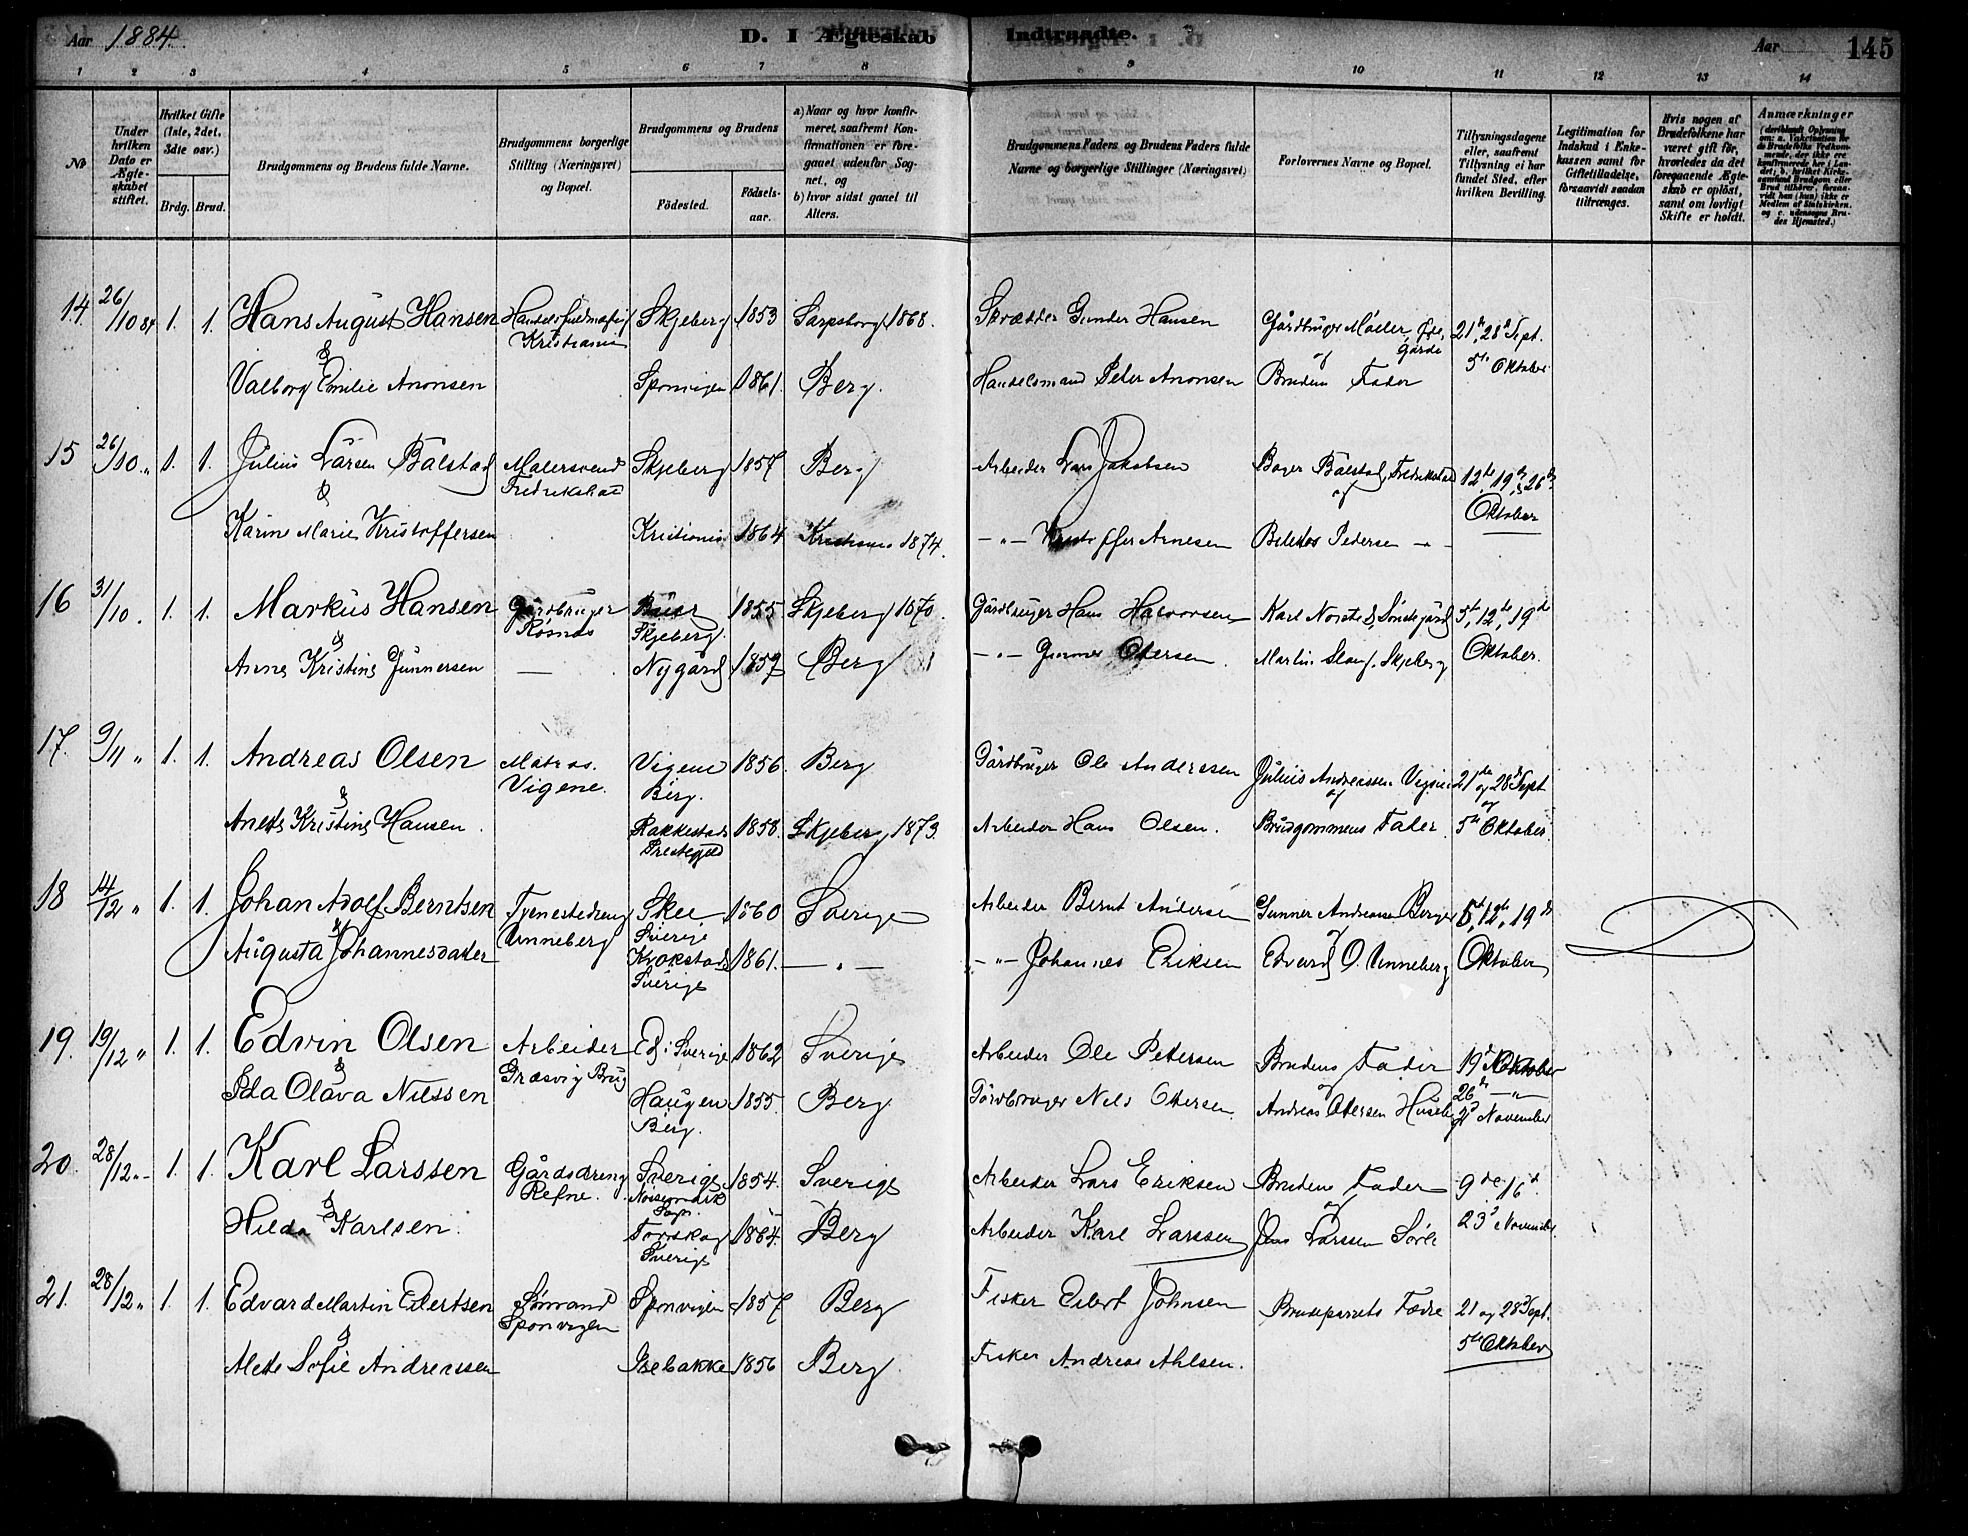 Aar 1884. D. I Ægteskab Indtraadte. Aar 145
1 2 3 4 5 6 7 8 9 10 11 12 13 14
No
Under hvilken Dato er Ægteskabet stiftet.
Hvilket Gifte (1ste, 2det, 3die osv.)
Brdg. Brud.
Brudgommens og Brudens fulde Navne.
Brudgommens borgerlige Stilling (Næringsvei) og Bopæl.
Brudgommens og Brudens
Fødested. Fødselsaar.
a) Naar og hvor konfirmeret, saafremt Konfirmationen er foregaaet udenfor Sognet, og
b) hvor sidst gaaet til Alters.
Brudgommens Faders og Brudens Faders fulde Navne og borgerlige Stillinger (Næringsvei)
Forlovernes Navne og Bopæl.
Tillysningsdagene eller, saafremt Tillysning ei har fundet Sted, efter hvilken Bevilling.
Legitimation for Indskud i Enkekassen samt for Giftetilladelse, forsaavidt saadan tiltrænges.
Hvis nogen af Brudefolkene har været gift før, hvorledes da det foregaaende Ægteskab er opløst, samt om lovligt Skifte er holdt.
Anmærkninger
14. 26/10 84 1. 1. Hans August Hansen Handelsfuldmægtig Skjeberg 1853 Sarpsborg 1868. Skrædder Gunder Hansen Gårdbruger Møller, 21de, 28de Sept.
& Kristiania og 5te Oktober
Valborg Emilie Aronsen Sponvigen 1861. Berg. Handelsmand Peter Aronsen Brudens Fader
15 26/10 „ 1. 1. Julius Larsen Bålstad Malersvend Skjeberg 1857 Berg Arbeider Lars Jakobsen Bålstad, Fredrikstad 12te, 19de, 26de
& Fredrikshald og Oktober
Karine Marie Kristoffersen Kristiania 1864 Kristiania 1874. – „ – Kristoffer Arnesen Pedersen – „ –
16 31/10. 1. 1. Markus Hansen Gårdbruger 1855 Skjeberg 1870. Gårdbruger Hans Halvorsen Karl Norsted, 5te, 12te, 19de
& Røsnæs Skjeberg. Oktober.
Anne Kristine Gunnersen — Nygård 1857 Berg – „ – Gunner Ottersen. Martin Skjeberg
17. 9/11 „ 1. 1. Andreas Olsen Matros. Vigene 1856. Berg Gårdbruger Ole Anderssen Julius Andreassen Vigene 21de og 28de Sept
& Vigene. Berg. og og
Anette Kristine Hansen. Rakkestads Prestegjeld 1858. Skjeberg 1873. Arbeider Hans Olsen. Brudgommens Fader. 5te Oktober.
18 14/12 „ 1. 1. Johan Adolf Berntsen Tjenestedreng Skee 1860 Sverige Arbeider Bernt Andersen Gunner Andreassen Berger 5te, 12te, 19de
& Unneberg Sverige og
Augusta Johannesdatter Krokstads Sverige 1861. – „ – – „ – Johannes Eriksen Edvard O. Unneberg Oktober
19. 19/12 „ 1. 1. Edwin Olsen Arbeider Ed i Sverige 1862 Sverige Arbeider Ole Petersen Brudens Fader 19de Oktober
& Græsvig Brug og 26de – „ –
Ida Olava Nilssen Haugen Berg. 1855. Berg Gårdbruger Nils Ottersen Andreas Ottersen 2de November
20. 28/12 „ 1. 1. Karl Larssen Gårdsdreng Sverige 1854. Sverige Arbeider Lars Eriksen Brudens Fader 9de 16de
& Refne. Nøssemark Sogn. og 23de November.
Hilda Karlsen. Torskog Sverige 1864. Berg Arbeider Karl Larssen Jens Larssen
21. 28/12 „ 1. 1. Edvard Martin Eilertsen Sømand Sponvigen 1857 Berg Fisker Eilert Johnsen Brudeparrets Fædre 21 og 28de Sept.
& Sponvigen 5te Oktober
Alette Sofie Andreassen Isebakke 1856 Berg Fisker Andreas Ahlsen.